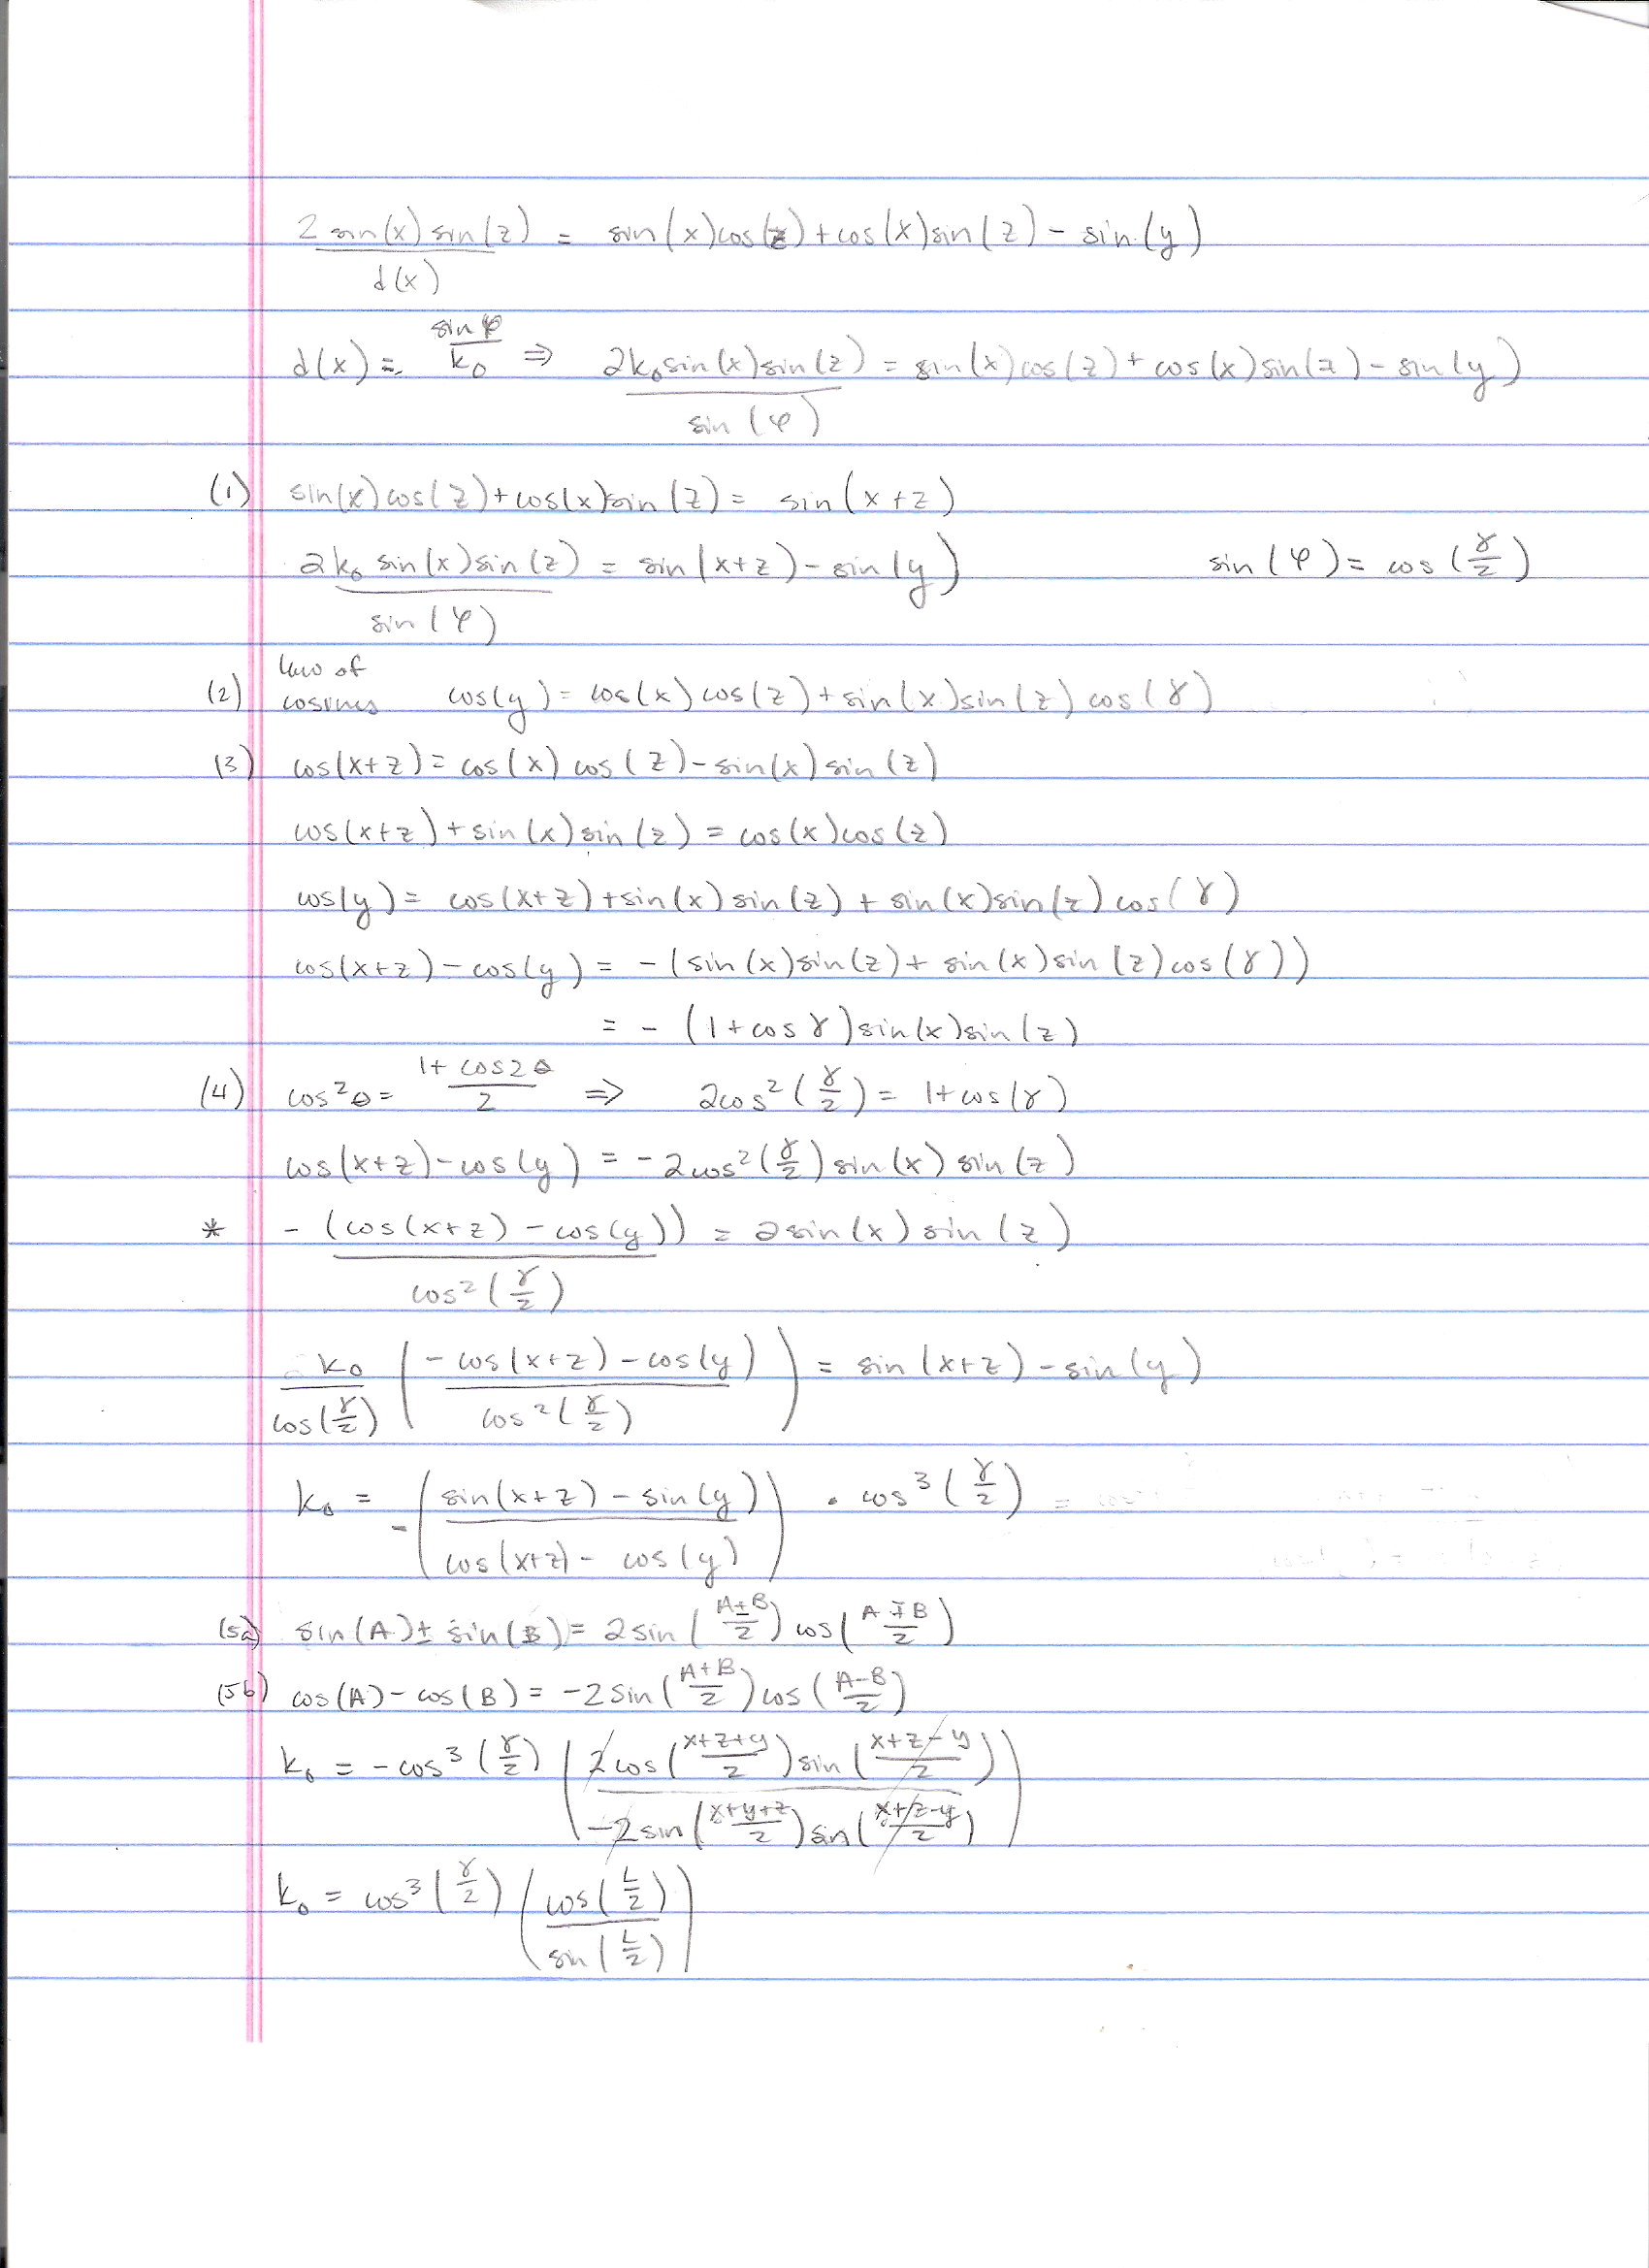 2 sin(x) sin(z) / d(x) = sin(x)cos(z) + cos(x)sin(z) - sin(y)
d(x) = sin φ / k₀ ⇒ 2k₀sin(x)sin(z) / sin(φ) = sin(x)cos(z) + cos(x)sin(z) - sin(y)
(1) sin(x)cos(z) + cos(x)sin(z) = sin(x+z)
2k₀ sin(x)sin(z) / sin(φ) = sin(x+z) - sin(y) sin(φ) = cos(γ/2)
(2) law of cosines cos(y) = cos(x)cos(z) + sin(x)sin(z)cos(γ)
(3) cos(x+z) = cos(x)cos(z) - sin(x)sin(z)
cos(x+z) + sin(x)sin(z) = cos(x)cos(z)
cos(y) = cos(x+z) + sin(x)sin(z) + sin(x)sin(z)cos(γ)
cos(x+z) - cos(y) = -(sin(x)sin(z) + sin(x)sin(z)cos(γ))
= -(1+cos γ)sin(x)sin(z)
(4) cos²θ = 1+cos2θ / 2 ⇒ 2cos²(γ/2) = 1+cos(γ)
cos(x+z) - cos(y) = -2cos²(γ/2)sin(x)sin(z)
* -(cos(x+z) - cos(y)) / cos²(γ/2) = 2sin(x)sin(z)
k₀ / cos(γ/2) (-cos(x+z) - cos(y)) / cos²(γ/2)) = sin(x+z) - sin(y)
k₀ = -(sin(x+z) - sin(y)) / cos(x+z) - cos(y)) · cos³(γ/2)
(5a) sin(A) ± sin(B) = 2sin(A±B / 2)cos(A∓B / 2)
(5b) cos(A) - cos(B) = -2sin(A+B / 2)cos(A-B / 2)
k₀ = -cos³(γ/2) (2cos(x+z+y / 2)sin(x+z-y / 2) / -2sin(x+y+z / 2)sin(x+z-y / 2))
k₀ = cos³(γ/2) (cos(L/2) / sin(L/2))